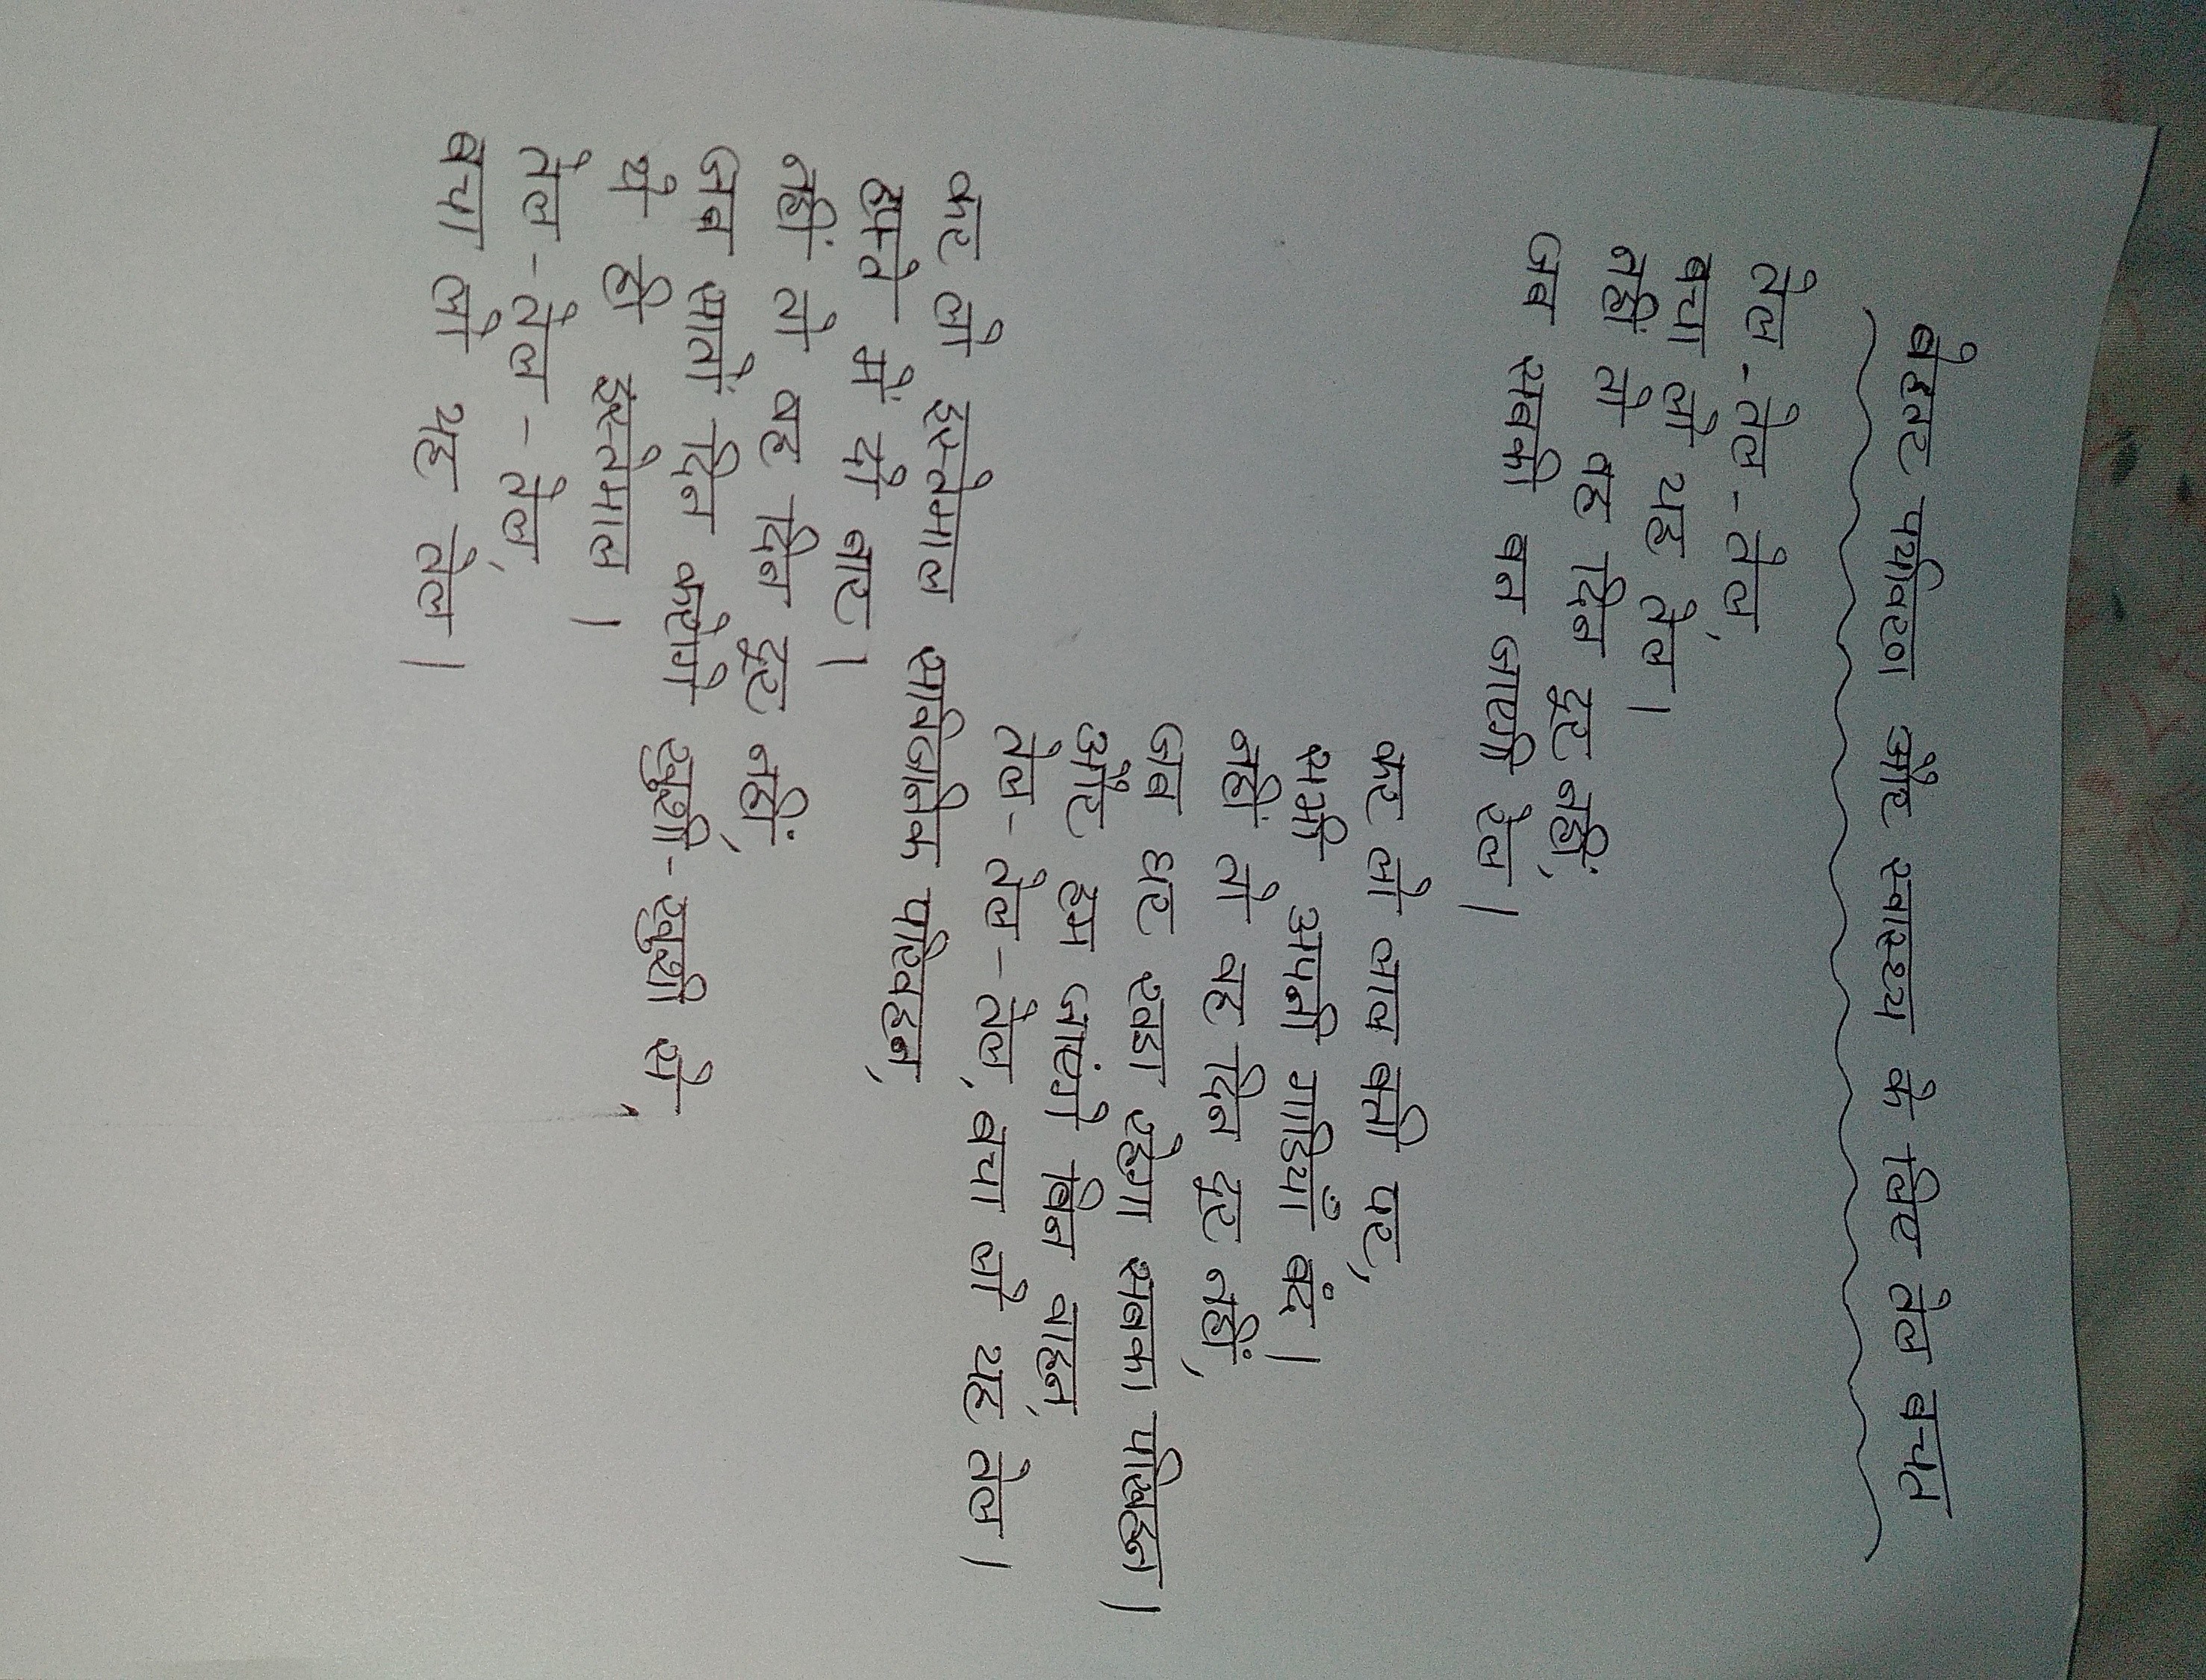 बेहतर पर्यावरण और स्वास्थ्य के लिए तेल बचत
तेल-तेल-तेल,
बचा लो यह तेल।
नहीं तो वह दिन दूर नहीं,
जब सबकी बन जाएगी रेल।
कर लो लाल बत्ती पर,
सभी अपनी गाड़ियाँ बंद।
नहीं तो वह दिन दूर नहीं,
जब घर खड़ा रहेगा सबका परिवहन।
और हम जाएंगे बिन वाहन,
तेल-तेल-तेल, बचा लो यह तेल।
कर लो इस्तेमाल सार्वजनिक परिवहन,
हफ्ते में दो बार।
नहीं तो वह दिन दूर नहीं,
जब सातों दिन करोगे खुशी-खुशी से,
ये ही इस्तेमाल।
तेल-तेल-तेल,
बचा लो यह तेल।